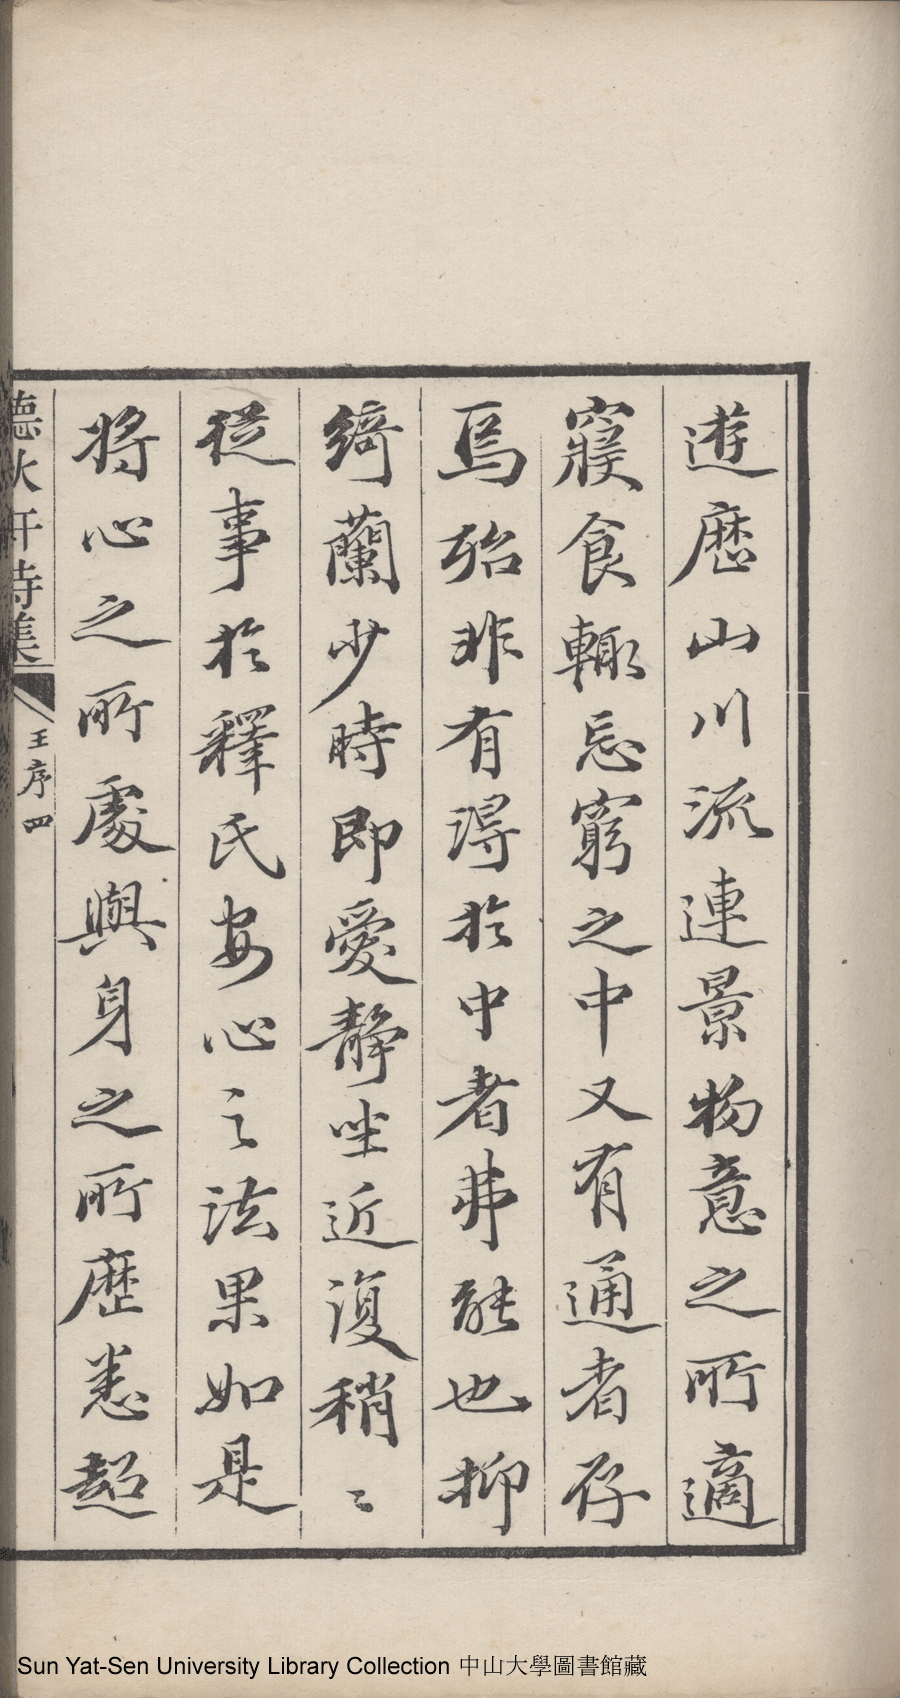 遊歷山川流連景物意之所適
寢食輙忘窮之中又有通者存
焉殆非有得於中者弗能也抑
綺蘭少時即愛靜坐近復稍〻
從事於釋氏安心之法果如是
將心之所處與身之所歷悉超
聽秋軒詩集
王序 四
Sun Yat-Sen University Library Collection 中山大學圖書館藏